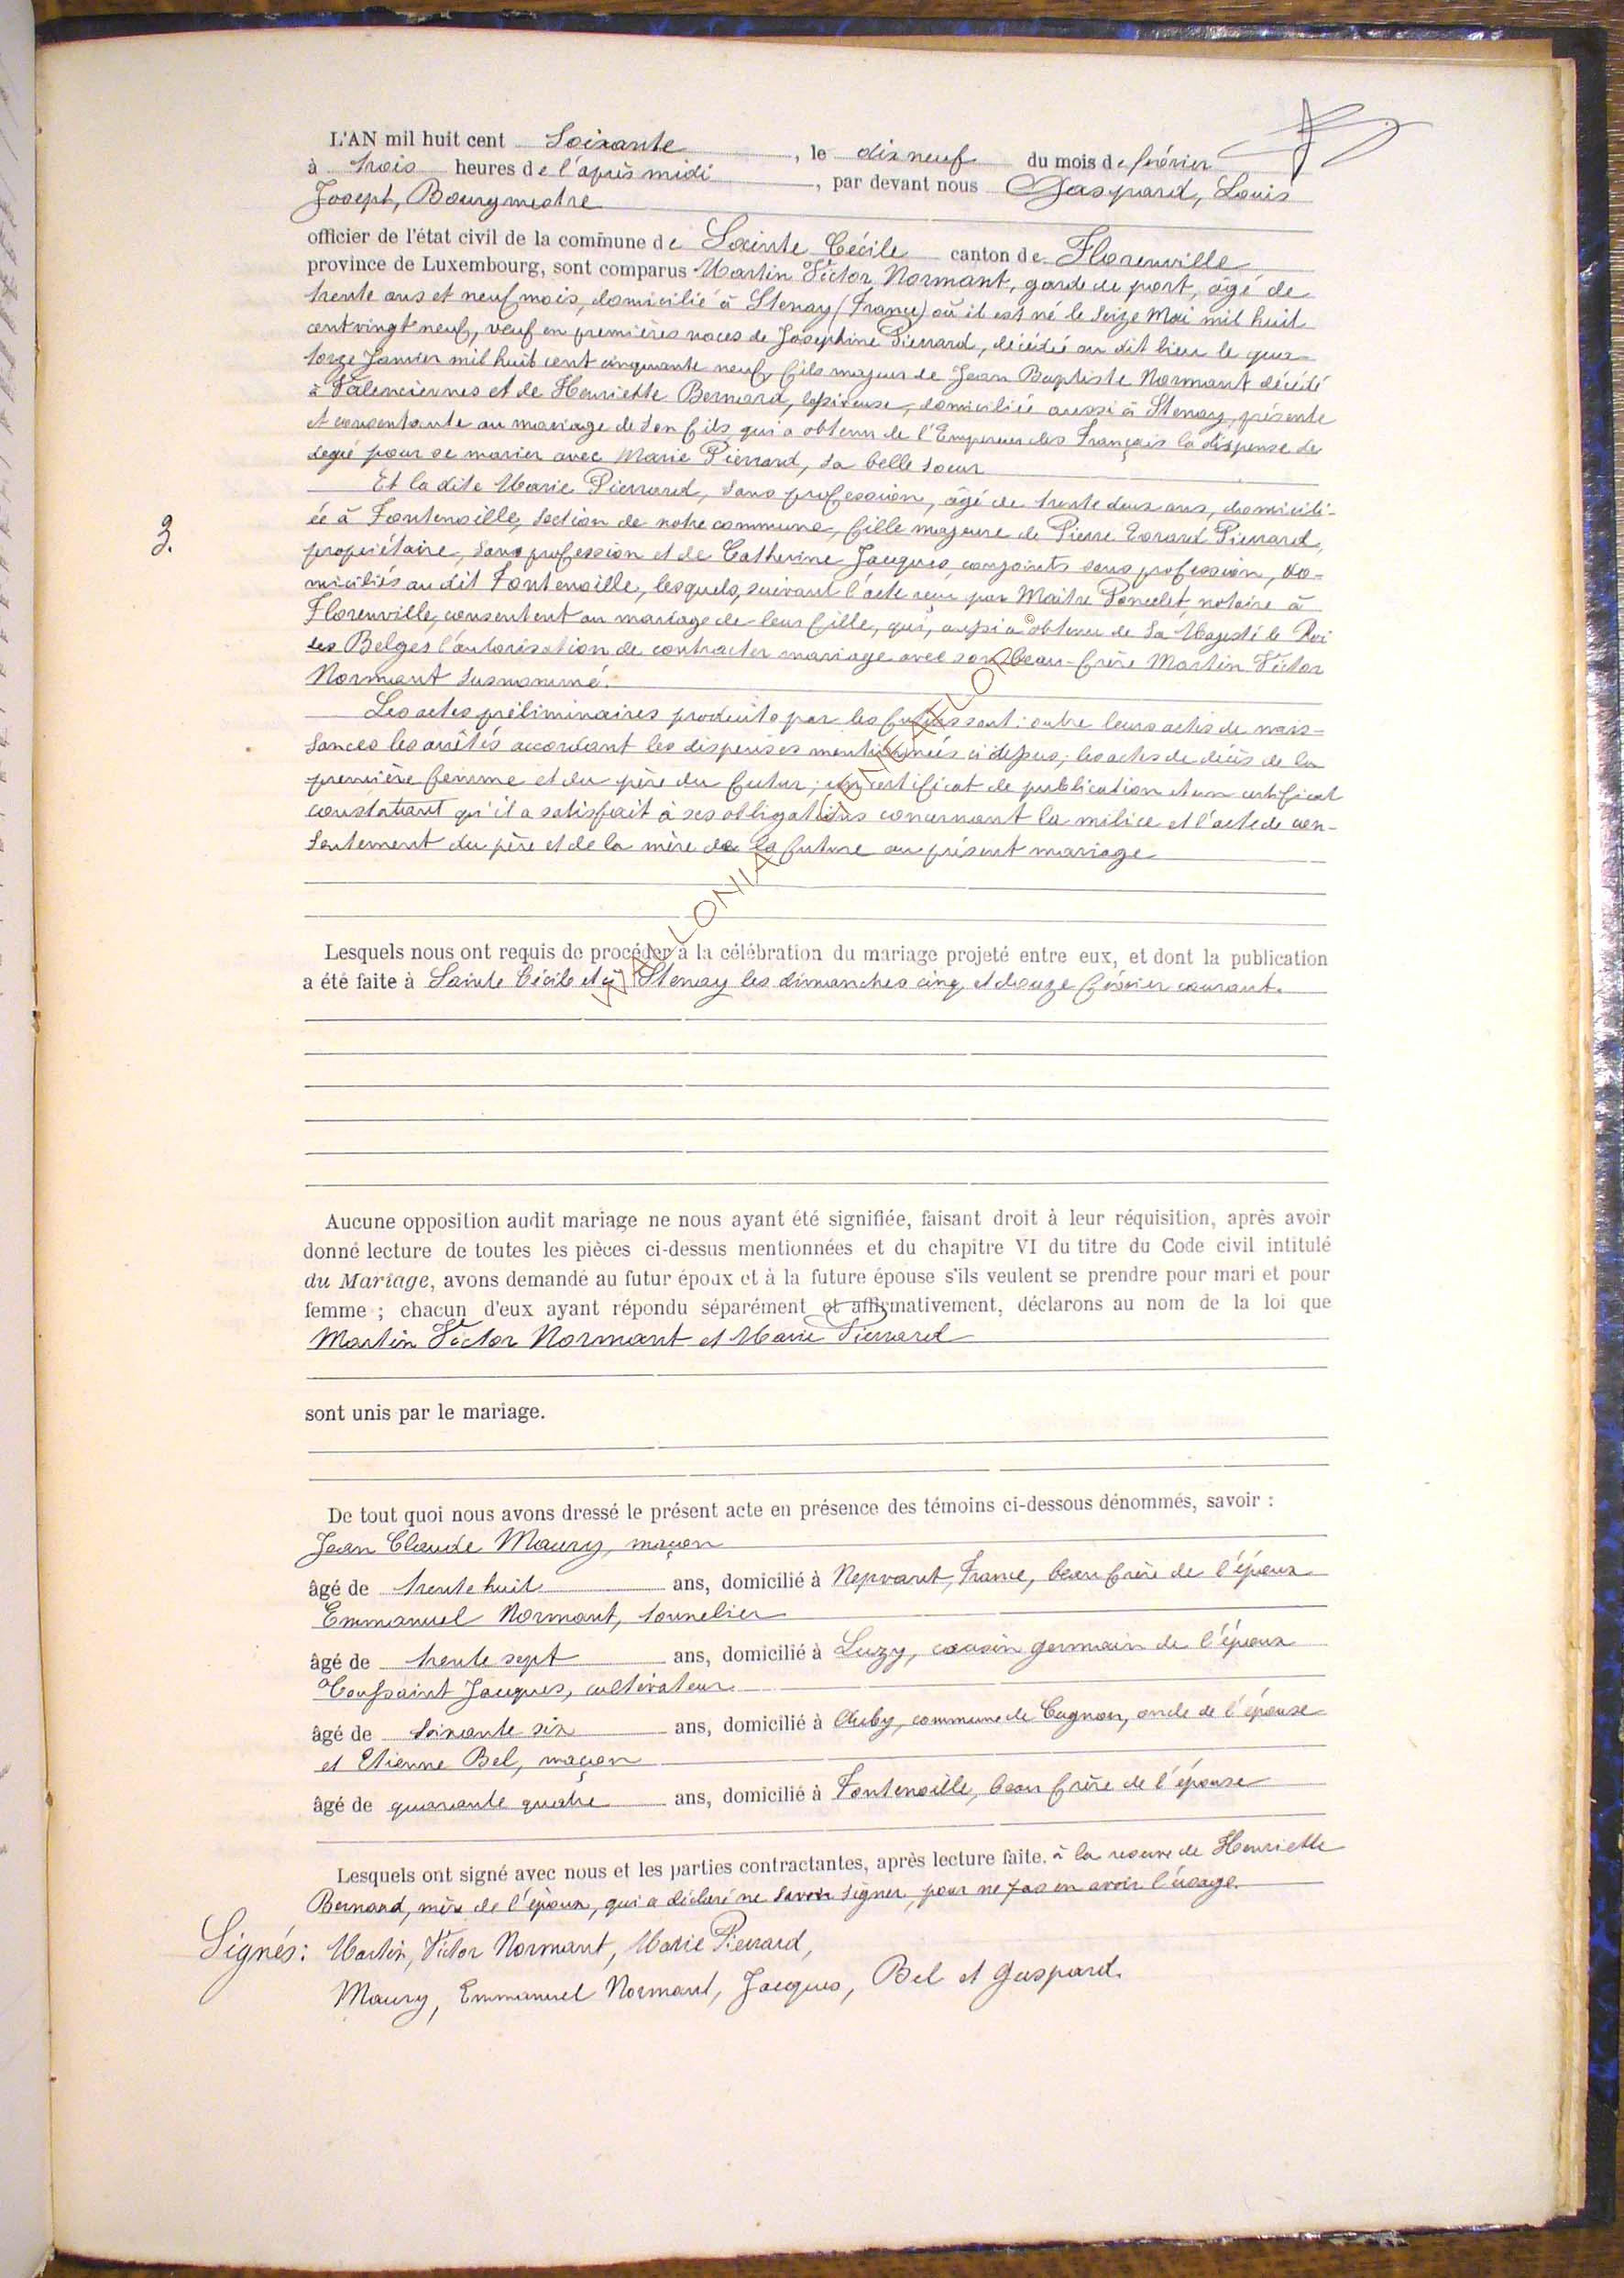 L'AN mil huit cent Soixante, le dix neuf du mois de février
à trois heures de l'après midi, par devant nous Gaspard, Louis
Joseph, Bourgmestre
officier de l'état civil de la commune de Sainte Cécile canton de Florenville
province de Luxembourg, sont comparus Martin Victor Normant, garde de port, âgé de
trente ans et neuf mois, domicilié à Stenay (France) où il est né le Seize Mai mil huit
cent vingt neuf, veuf en premières noces de Joséphine Pierrard, décédée au dit lieu le qua-
torze Janvier mil huit cent cinquante neuf, fils majeur de Jean Baptiste Normant décédé
à Valenciennes et de Henriette Bernard, domiciliée aussi à Stenay, présente
et consentante au mariage de son fils qui a obtenu de l'Empereur des Français la dispense de
degré pour se marier avec Marie Pierrard, sa belle soeur
Et la dite Marie Pierrard, sans profession, âgé de trente deux ans, domicili-
3.
ée à Fontenoille, section de notre commune, fille majeure de Pierre Evrard Pierrard,
propriétaire, sans profession et de Catherine Jacques, conjoints sans profession, do-
miciliés au dit Fontenoille, lesquels, suivant l'acte reçu par Maitre Poncelet, notaire à
Florenville, consentent au mariage de leur fille, qui, aussi a obtenu de Sa Majesté le Roi
des Belges l'autorisation de contracter mariage avec son beau-frère Martin Victor
Normant susnommé.
Les actes préliminaires produits par les futurs sont: outre leurs actes de nais-
sances les arrêtés accordant les dispenses mentionnées ci dessus; les actes de décès de la
première femme et du père du futur; un certificat de publication et un certificat
constatant qu'il a satisfait à ses obligations concernant la milice et l'acte de con-
sentement du père et de la mère de la future au présent mariage
Lesquels nous ont requis de procéder à la célébration du mariage projeté entre eux, et dont la publication
a été faite à Sainte Cécile et à Stenay les dimanches cinq et douze février courant.
Aucune opposition audit mariage ne nous ayant été signifiée, faisant droit à leur réquisition, après avoir
donné lecture de toutes les pièces ci-dessus mentionnées et du chapitre VI du titre du Code civil intitulé
du Mariage, avons demandé au futur époux et à la future épouse s'ils veulent se prendre pour mari et pour
femme ; chacun d'eux ayant répondu séparément et affirmativement, déclarons au nom de la loi que
Martin Victor Normant et Marie Pierrard
sont unis par le mariage.
De tout quoi nous avons dressé le présent acte en présence des témoins ci-dessous dénommés, savoir :
Jean Claude Maury, maçon
âgé de trente huit ans, domicilié à Nepvant, France, beau frère de l'époux
Emmanuel Normant, tonnelier
âgé de trente sept ans, domicilié à Luzy, cousin germain de l'époux
Toussaint Jacques, cultivateur
âgé de soixante six ans, domicilié à Auby, commune de Cugnon, oncle de l'épouse
et Etienne Bel, maçon
âgé de quarante quatre ans, domicilié à Fontenoille, beau frère de l'épouse
Lesquels ont signé avec nous et les parties contractantes, après lecture faite. à la reserve de Henriette
Bernard, mère de l'époux, qui a déclaré ne savoir signer, pour ne pas en avoir l'usage.
Signés: Martin, Victor Normant, Marie Pierrard,
Maury, Emmanuel Normant, Jacques, Bel et Gaspard.